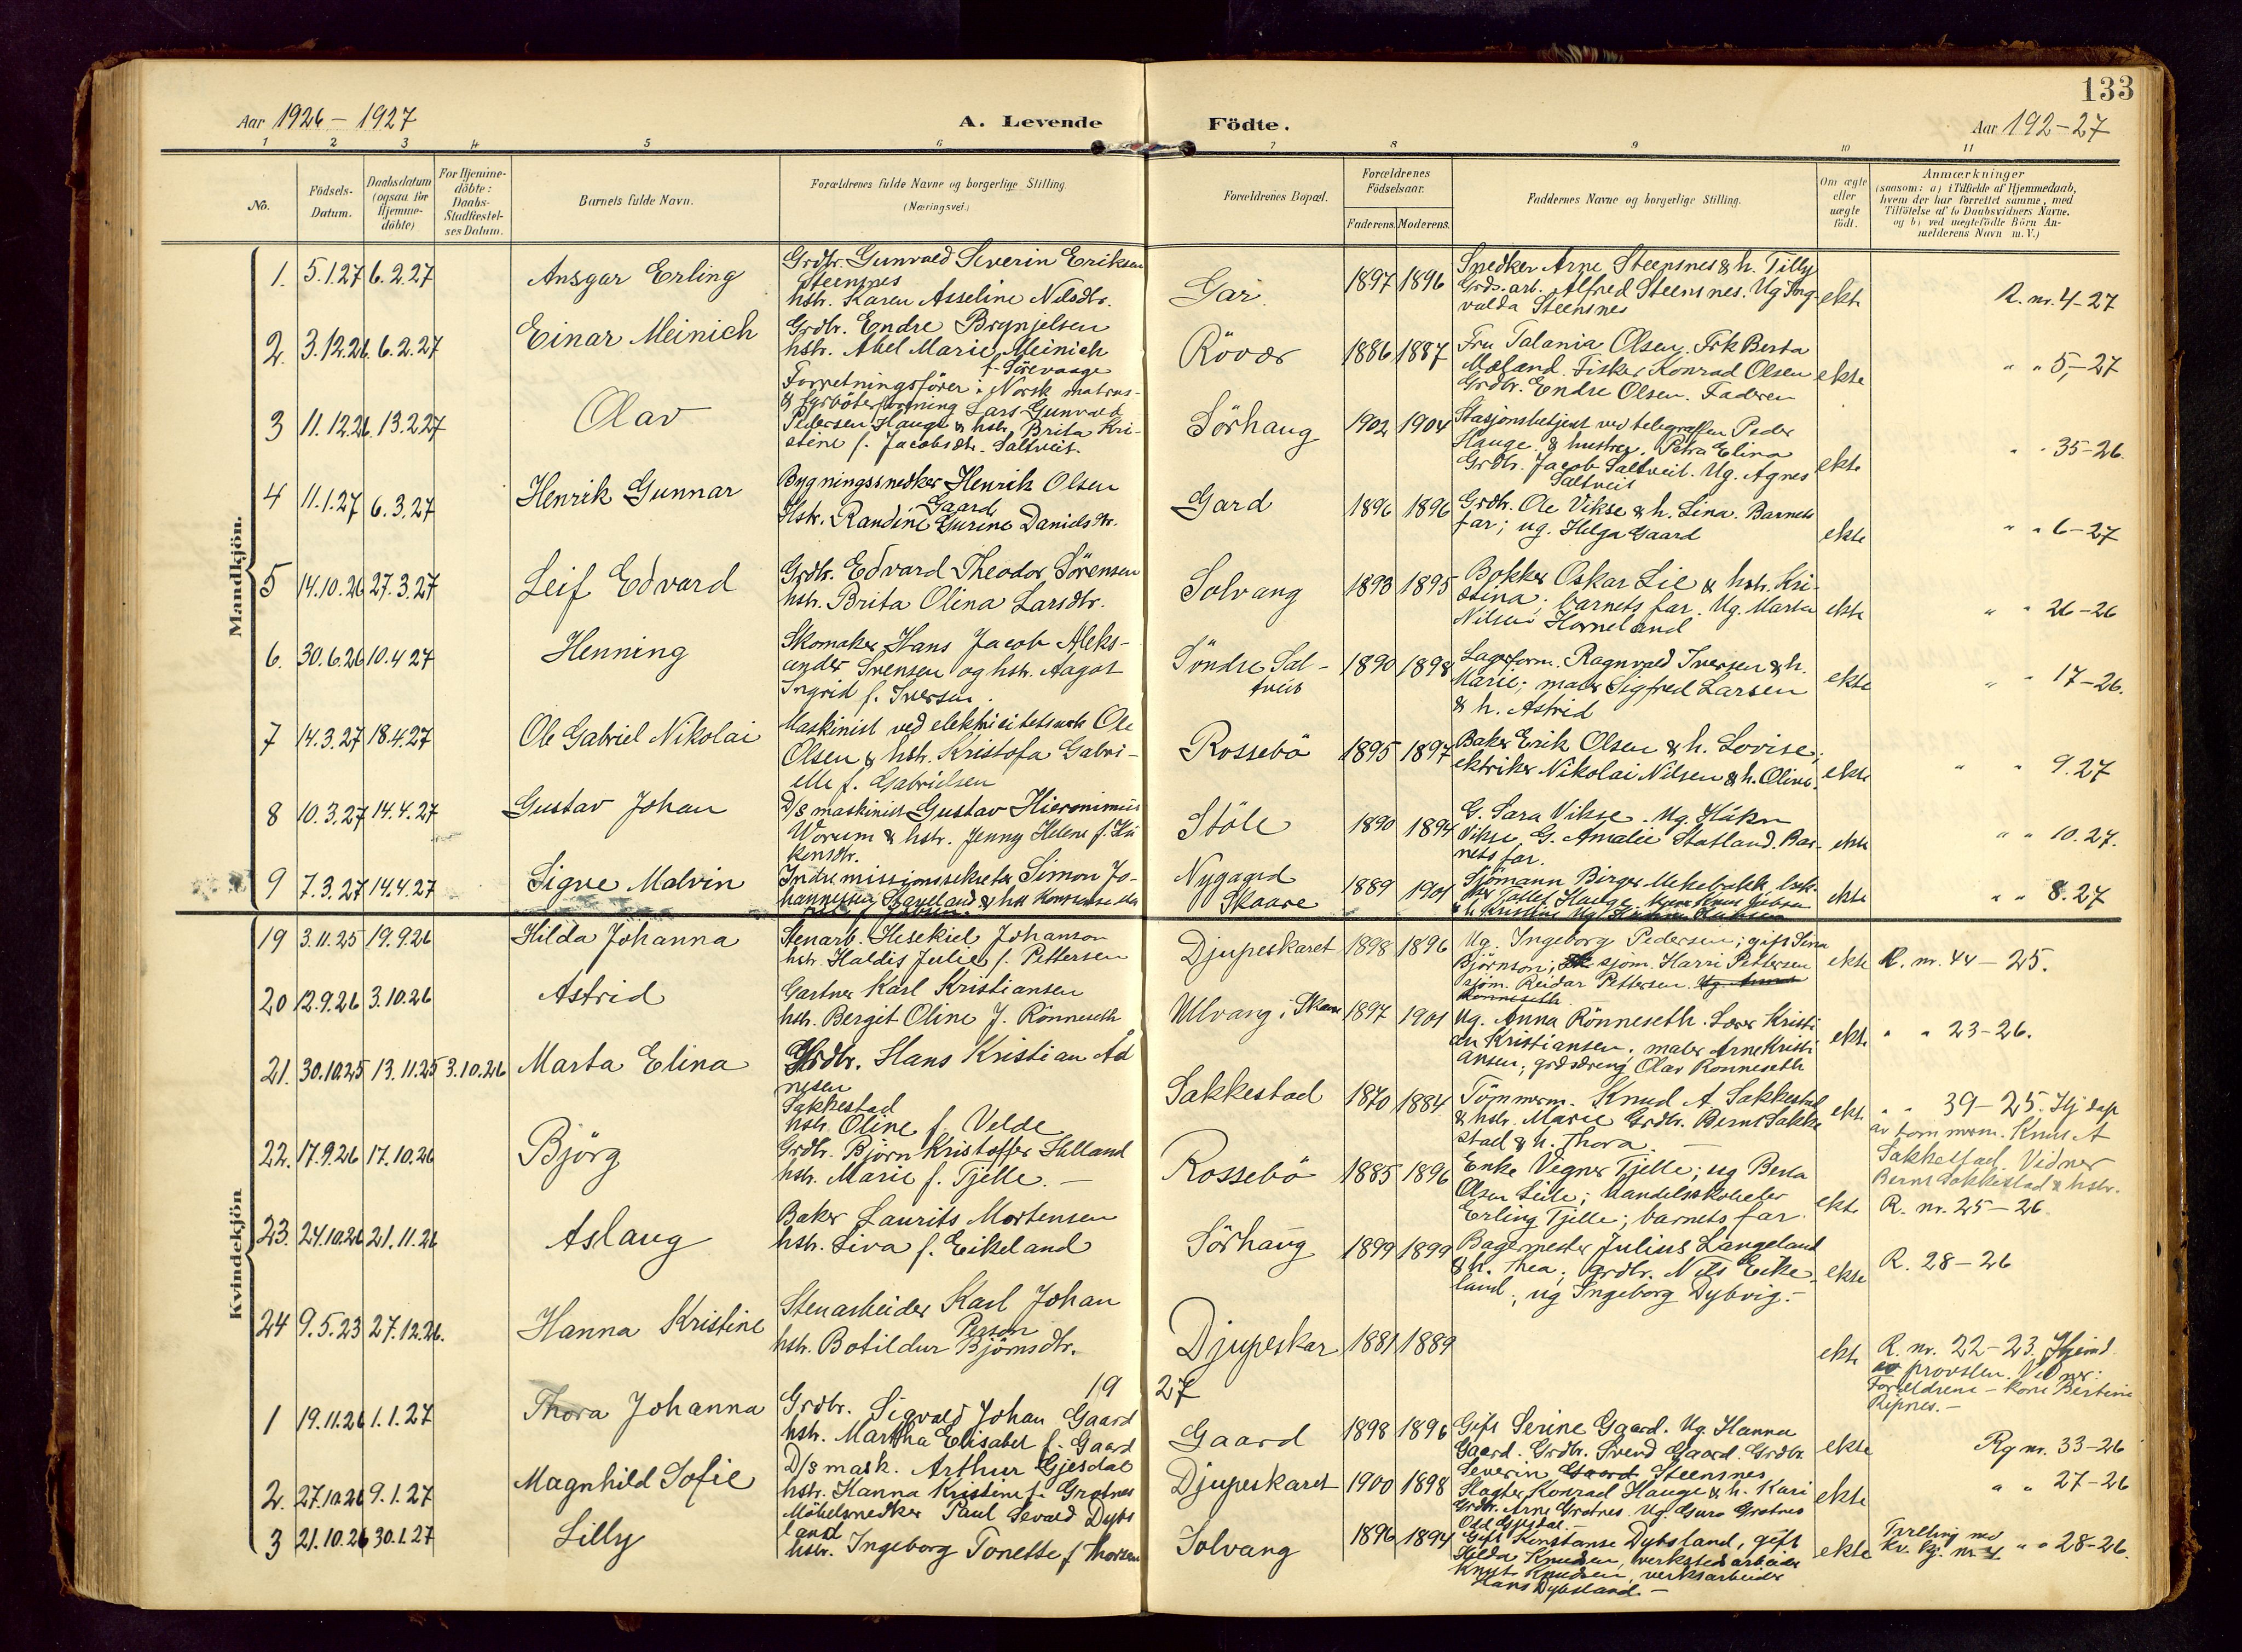 133
Aar 1926 – 1927
A. Levende
Födte.
Aar 192-27
1 2 3 4 5 6 7 8 9 10 11
No.
Födsels-Datum.
Daabsdatum (ogsaa for Hjemme-döbte)
For Hjemme-döbte: Daabs-Stadfæstel-ses Datum.
Barnets fulde Navn.
Forældrenes fulde Navne og borgerlige Stilling.
(Næringsvei.)
Forældrenes Bopæl.
Forældrenes Födselsaar.
Faderens. Moderens.
Faddernes Navne og borgerlige Stilling.
Om ægte eller uægte födt.
Anmærkninger
(saasom: a) i Tilfælde af Hjemmedaab,
hvem der har forrettet samme, med
Tilföielse af to Daabsvidners Navne,
og b) ved uegtefödte Börn An-
melderens Navn m. V.)
Mandkjön.
1. 5.1.27 6.2.27 Ansgar Erling
Grdbr. Gunvald Severin Eriksen
Steensnes
hstr. Karen Asseline Nilsdtr.
Gar. 1897 1896
Snedker Arne Steensnes & h. Tilly
Grds. arb. Alfred Steensnes. Ug Ing-
valda Steensnes
ekte R. nr. 4-27
2. 3.12.26. 6.2.27 Einar Meinich
Grdbr. Endre Brynjelsen
hstr. Abel Marie Meinich
f. Sörevaage
Rövær 1886 1887
Fru Talania Olsen. Frk Berta
Mæland. Fisker Konrad Olsen
Grdbr. Endre Olsen. Faderen
ekte " " 5,-27
3 11.12.26. 13.2.27 Olav
Forretningsförer i Norsk matros-
& fyrböterforening Lars Gunvald
Pedersen Hauge & hstr. Brita Kri-
stine f. Jacobsdtr. Saltveit.
Sörhaug 1902 1904
Stasjonsbetjent ved telegrafen Peder
Hauge & hustru. Petra Elina
Grdbr. Jacob Saltveit. Ug. Agnes
Saltveit
ekte " " 35-26.
4 11.1.27 6.3.27 Henrik Gunnar
Bygningssnedker Henrik Olsen
Gaard
Hstr. Randine Gurine Danielsdtr.
Gard 1896 1896
Grdbr. Ole Vikse & h. Lina. Barnets
far; ug. Helga Gaard
ekte " " 6-27
5 14.10.26 27.3.27 Leif Edvard
Grdbr. Edvard Theodor Sörensen
hstr. Brita Olina Larsdtr.
Solvang 1893 1895
Bokker Oskar Lie & hstr. Kri-
stina; barnets far. Ug. Marta
Nilsen Horneland
ekte " " 26-26
6. 30.6.26 10.4 27 Henning
Skomaker Hans Jacob Aleks-
ander Svensen og hstr. Aagot
Ingrid f. Iversen.
Söndre Sal-
tveit 1890 1898
Lagerform. Ragnvald Iversen & h.
Marie; maler Sigfred Larsen
& h. Astrid
ekte " " 17-26.
7 14.3.27 18.4.27 Ole Gabriel Nikolai
Maskinist ved elektrisitetsverk Ole
Olsen & hstr. Kristofa Gabri-
elle f. Gabrielsen
Rossebö 1895 1897
Baker Erik Olsen & h. Lovise;
ektriker Nikolai Nilsen & h. Oline.
ekte " " 9.27
8 10.3.27 14.4.27 Gustav Johan
D/s maskinist Gustav Hieronimus
Worum & hstr. Jenny Helene f. Hå-
konsdtr.
Stöle 1890 1894
G. Sara Vikse. Ug. Håkon
Vikse G. Amalie Statland. Bar-
nets far.
ekte " " 10.27.
9 7.3.27 14.4.27 Sigve Malvin
Indremissionssekretær Simon Jo-
hannessen Staveland & hstr
Nygaard
Skaare 1889 1901
Sjömann Birger
ekte " " 8.27
Kvindekjön
19 3.11.25 19.9.26 Hilda Johanna
Stenarb. Hesekiel Johanson
hstr. Haldis Julie f. Pettersen
Djupeskaret 1898 1896
Ug. Ingeborg Pedersen; gift Lina
Björnson; sjöm. Harri Pettersen
sjöm. Reidar Pettersen. Ug. Anna
Rönneseth
ekte R. nr. 44 – 25.
20 12.9.26 3.10.26 Astrid
Gartner Karl Kristiansen
hstr. Bergit Oline f. Rönneseth
Ullvang i Skaare 1897 1901
Ug. Anna Rönneseth. Lærer Kristi
an Kristiansen; maler Arne Kristi
ansen; grdsdreng Olav Rönneseth
ekte " " 23-26.
21. 30.10.25 13.11.25 3.10.26 Marta Elina
Grdbr. Hans Kristian Åd
nesen
Sakkestad
hstr. Oline f. Velde
Sakkestad 1870 1884
Tömmerm. Knud A. Sakkestad
& hstr. Marie Grdbr. Bernt Sakke
stad & h. Thora –
ekte " " 39-25. Hj døp
av tömmerm. Knut A
Sakkestad. Vidner
Bernt Sakkestad & hstr.
22. 17.9.26 17.10.26 Björg
Grdbr. Björn Kristoffer Helland
hstr. Marie f. Tjelle. –
Rossebö 1885 1896
Enke Vegner Tjelle; ug Berta
Olsen Leite; handelsskoleelev
Erling Tjelle; barnets far
ekte R. nr. 25 – 26.
23. 24.10.26 21.11.26 Aslaug
Baker Laurits Mortensen
hstr. Siva f. Eikeland
Sörhaug 1899 1899
Bagermester Julius Langeland
& h. Thea; grdbr. Nils Eike-
land; ug Ingeborg Dybvig.–
ekte R. 28 – 26
24 9.5.23 27.12.26. Hanna Kristine
Stenarbeider Karl Johan
Person
hstr. Botildur Björnsdtr.
Djupeskar 1881 1889
ekte R. nr. 22-23. Hjemd.
av provsten. Vidner:
Forældrene – kone Bertine
Ripnes. –
19 27
1 19.11.26 1.1.27 Thora Johanna
Grdbr. Sigvald Johan Gaard
hstr. Martha Elisabet f. Gaard
Gaard 1898 1896
Gift Serine Gaard. Ug. Hanna
Gaard. Grdbr. Svend Gaard. Grdbr.
Severin Gaard Steensnes
ekte Rg nr. 33-26
2. 27.10.26 9.1.27 Magnhild Sofie
D/s mask. Arthur Gjesdal
hstr. Hanna Kristine f. Grotnes
Djupeskaret 1900 1898
Slagter Konrad Hauge & h. Kari
Grdbr. Arne Grotnes. Ug. Guro Grotnes
Odd Gjesdal. –
ekte " " 27-26
3 21.10.26 30.1.27 Lilly
Möbelsnedker Paul Sevald Dybs
land
hstr. Ingeborg Tonette f. Thorsen
Solvang 1896 1894
Gift Konstanse Dybsland, gift
Hilda Knudsen, verkstedarbeider
Knut Knudsen, verksarbeider
Hans Dybsland. –
ekte Tvilling med
Kv. kj. nr 4 " " 28-26.